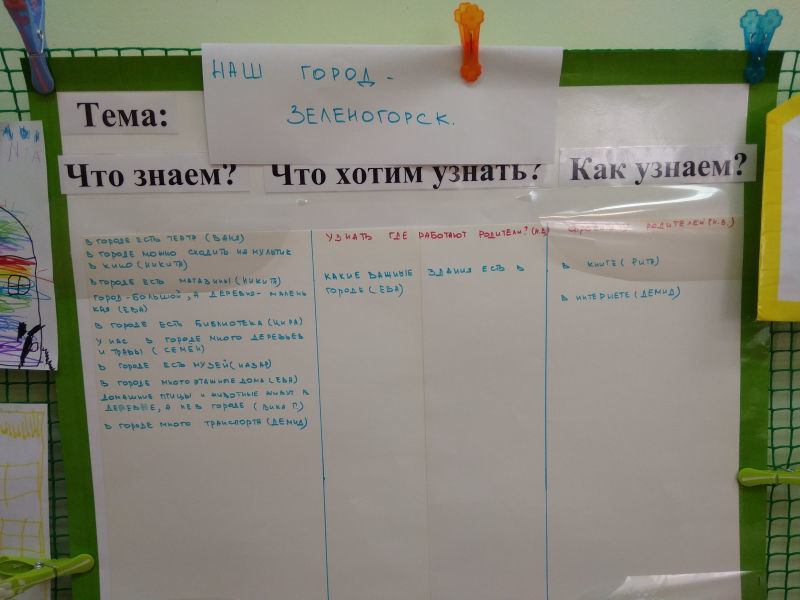 НАШ ГОРОД -
ЗЕЛЕНОГОРСК.
Тема:
Что знаем?
Что хотим узнать?
Как узнаем?
В ГОРОДЕ ЕСТЬ ТЕАТР (ВАНЯ)
В ГОРОДЕ МОЖНО СХОДИТЬ НА МУЛЬТИК
В КИНО (НИКИТА)
В ГОРОДЕ ЕСТЬ МАГАЗИНЫ (НИКИТА)
ГОРОД - БОЛЬШОЙ, А ДЕРЕВНЯ - МАЛЕНЬ
КАЯ (ЕВА)
В ГОРОДЕ ЕСТЬ БИБЛИОТЕКА (КИРА)
У НАС В ГОРОДЕ МНОГО ДЕРЕВЬЕВ
И ТРАВЫ (СЕМЁН)
В ГОРОДЕ ЕСТЬ МУЗЕЙ (НАЗАР)
В ГОРОДЕ МНОГО ЭТАЖНЫЕ ДОМА (ЕВА)
ДОМАШНИЕ ПТИЦЫ И ЖИВОТНЫЕ ЖИВУТ В
ДЕРЕВНЕ, А НЕ В ГОРОДЕ (ВИКА П.)
В ГОРОДЕ МНОГО ТРАНСПОРТА (ДЕМИД)
УЗНАТЬ ГДЕ РАБОТАЮТ РОДИТЕЛИ? (Н.В.)
КАКИЕ ВАЖНЫЕ ЗДАНИЯ ЕСТЬ В
ГОРОДЕ (ЕВА)
РОДИТЕЛЕЙ (Н.В.)
В КНИГЕ (РИТА)
В ИНТЕРНЕТЕ (ДЕМИД)